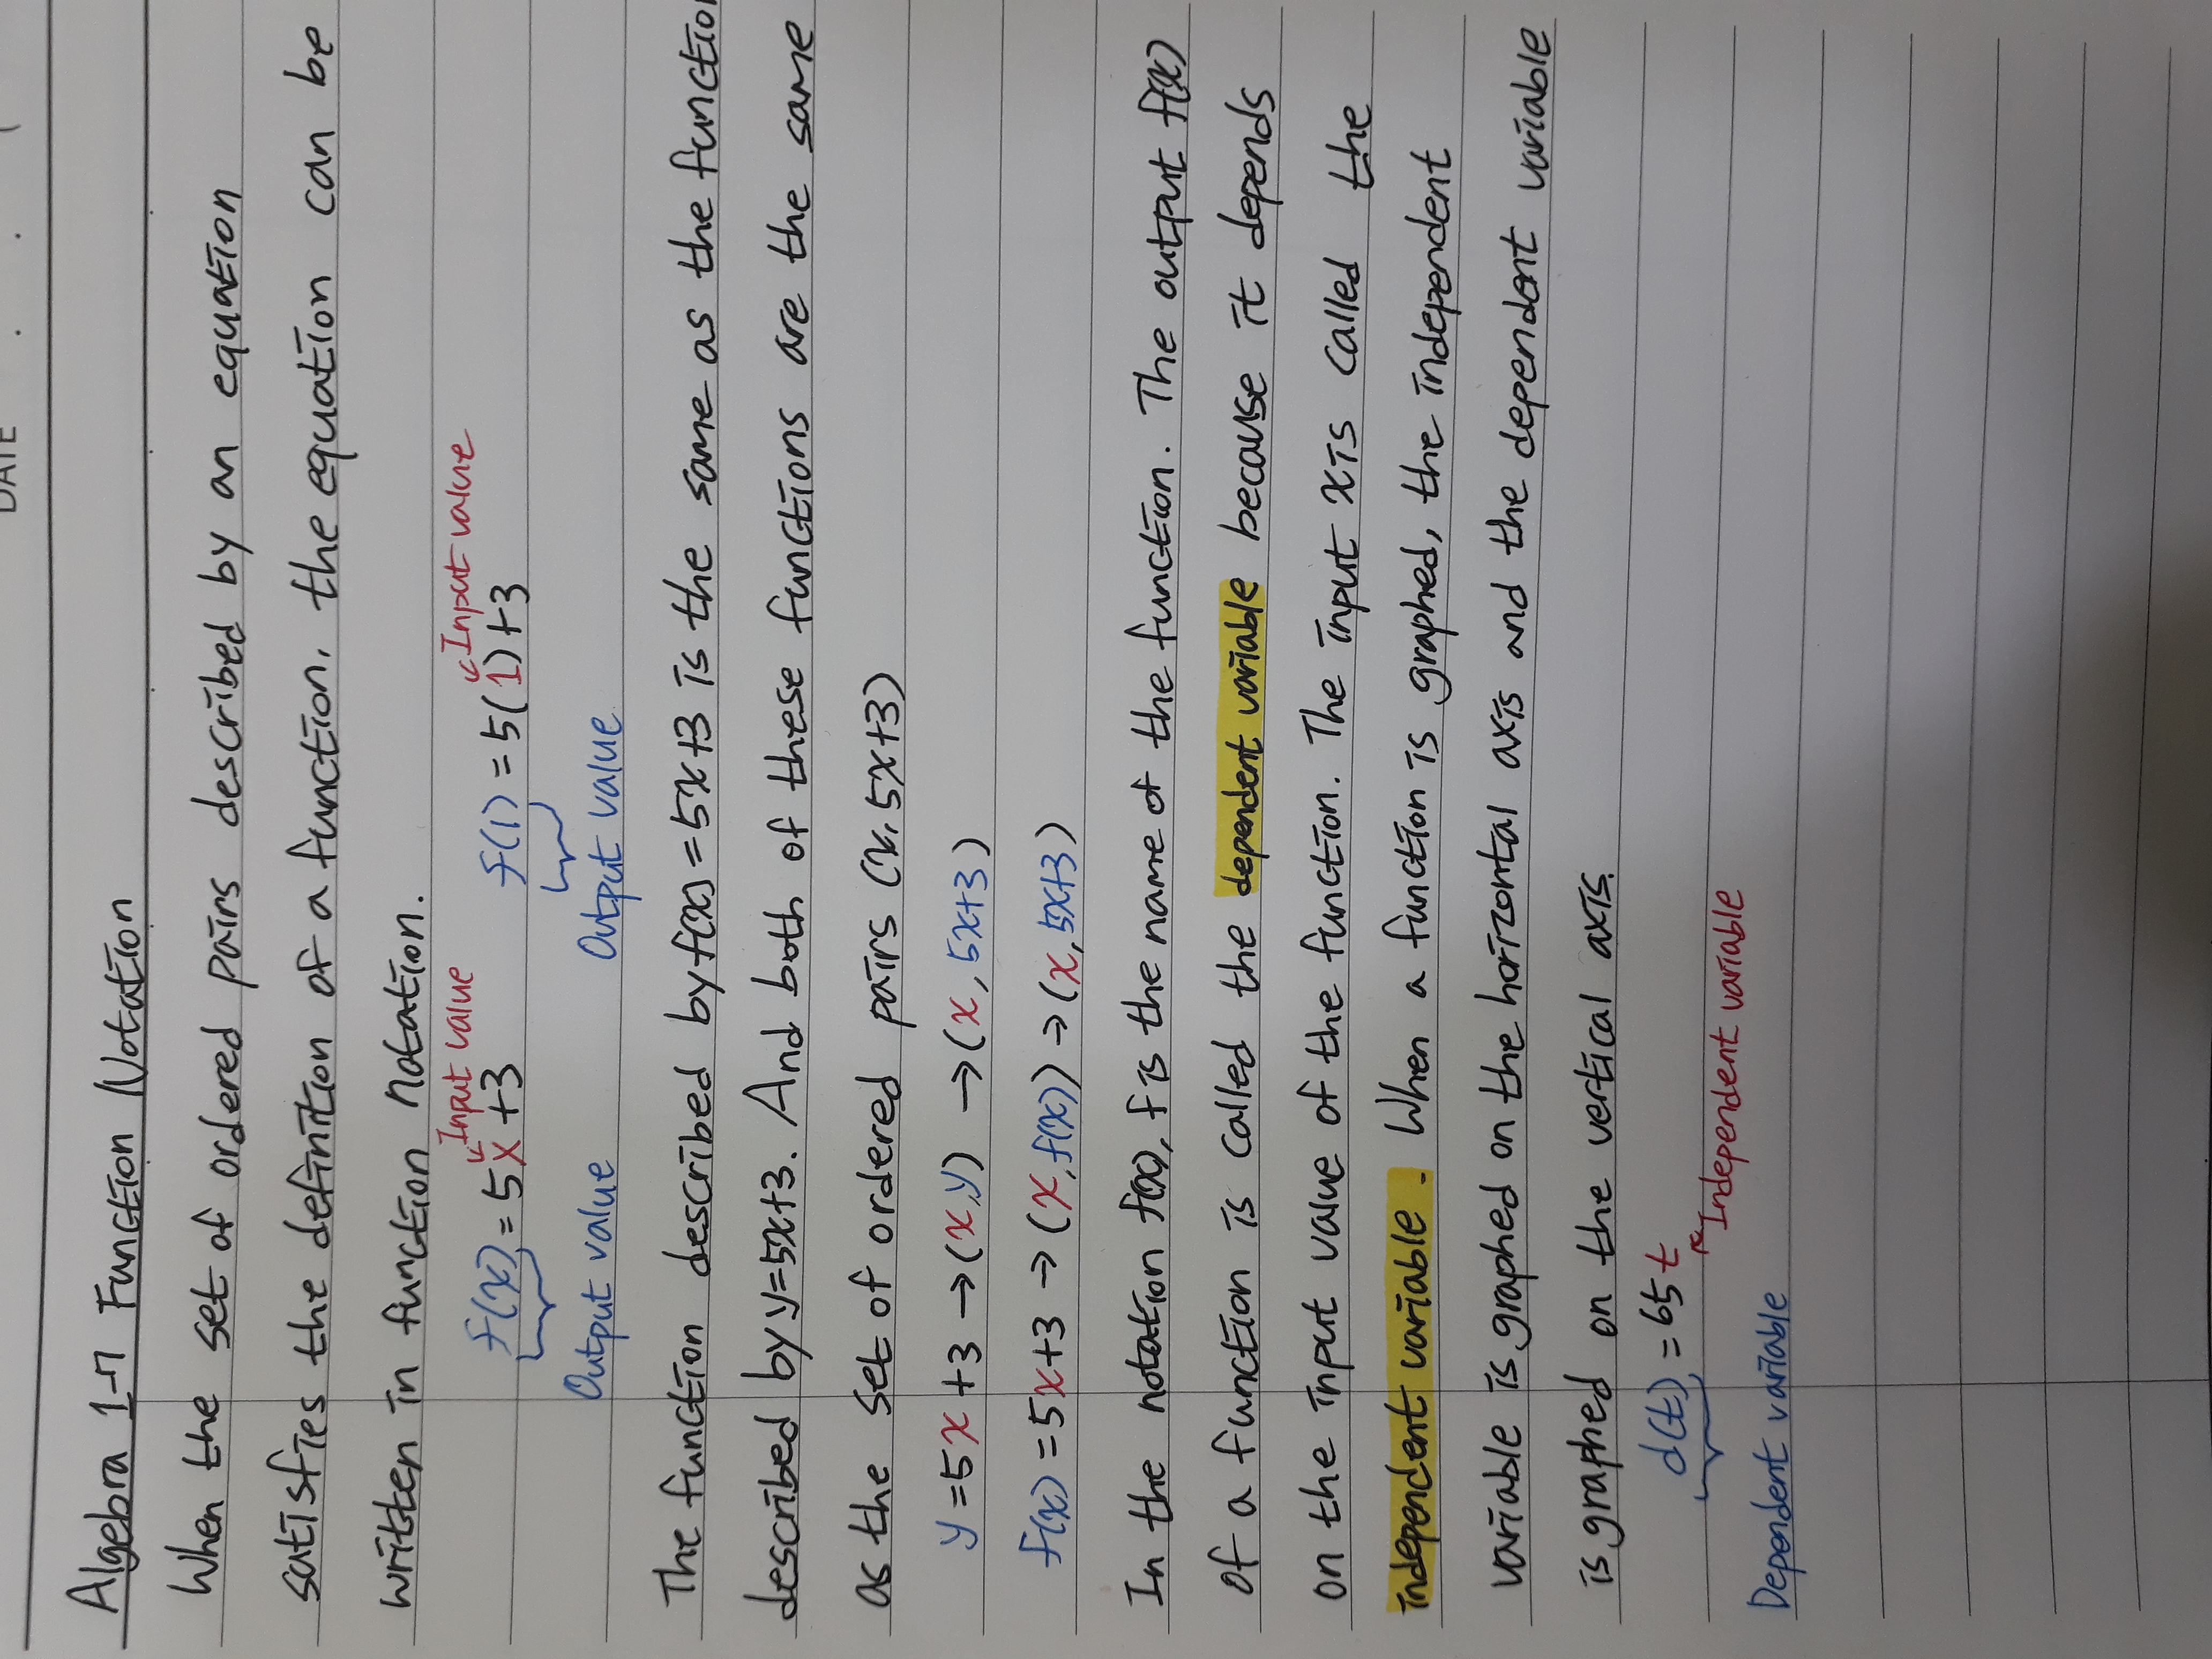 DATE . .
Algebra 1-7 Function Notation
When the set of ordered pairs described by an equation
satisfies the definition of a function, the equation can be
written in function notation.
Input value Input value
f(x) = 5x+3 f(1) = 5(1)+3
Output value Output value
The function described by f(x)=5x+3 is the same as the function
described by y=5x+3. And both of these functions are the same
as the set of ordered pairs (x, 5x+3)
y = 5x+3 → (x,y) → (x, 5x+3)
f(x) = 5x+3 → (x, f(x)) → (x, 5x+3)
In the notation f(x), f is the name of the function. The output f(x)
of a function is called the dependent variable because it depends
on the input value of the function. The input x is called the
independent variable. When a function is graphed, the independent
variable is graphed on the horizontal axis and the dependent variable
is graphed on the vertical axis.
d(t) = 65t
Independent variable
Dependent variable